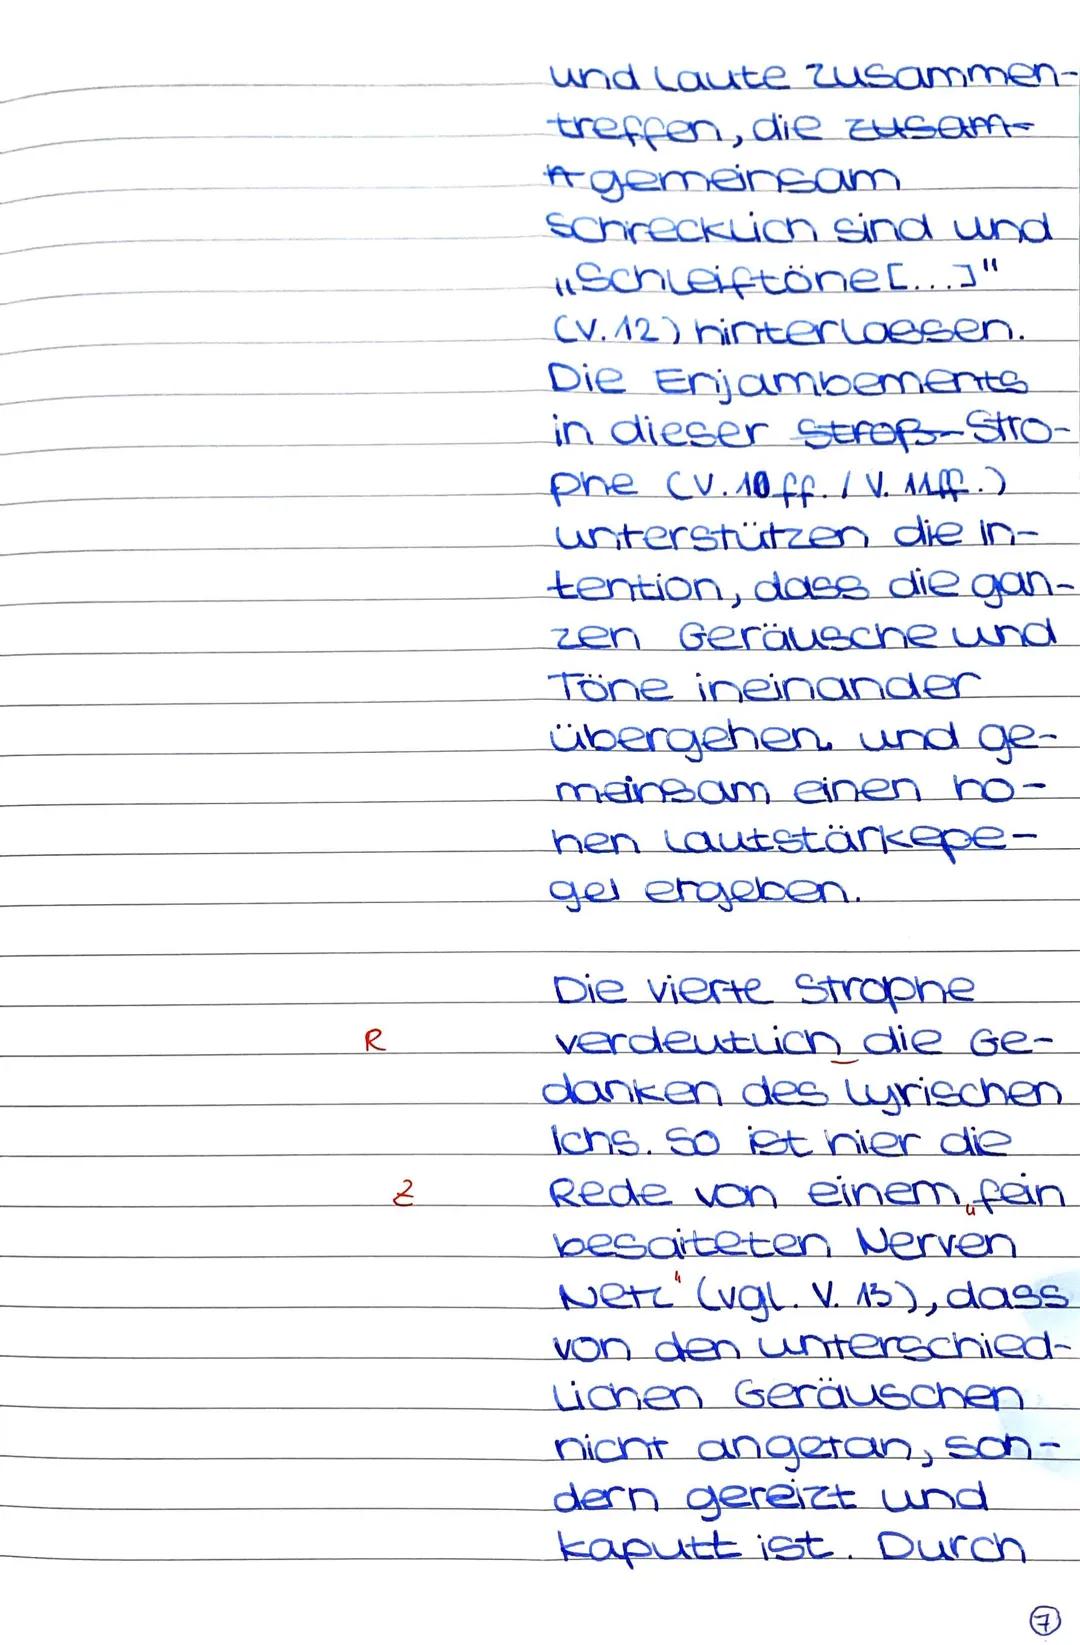 und Laute zusammen-
treffen, die zusam-
gemeinsam
schrecklich sind und
„Schleiftöne[...]"
(V. 12) hinterlassen.
Die Enjambements
in dieser Strop- Stro-
phe (V. 10 ff. / V. 11 ff.)
unterstützen die In-
tention, dass die gan-
zen Geräusche und
Töne ineinander
übergehen und ge-
meinsam einen ho-
hen Lautstärkepe-
gel ergeben.
Die vierte Strophe
R verdeutlich die Ge-
danken des lyrischen
Ichs. So ist hier die
Z Rede von einem „fein
besaiteten Nerven
Netz" (vgl. V. 13), dass
von den unterschied-
lichen Geräuschen
nicht angetan, son-
dern gereizt und
kaputt ist. Durch
7